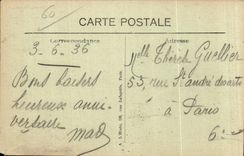 60
CARTE POSTALE
Correspondance
Adresse
3-6-36
Bons baisers
heureux anni-
versaire
Mad
Mlle Thérèse Guellier
53, rue St andré des arts
à Paris
6e